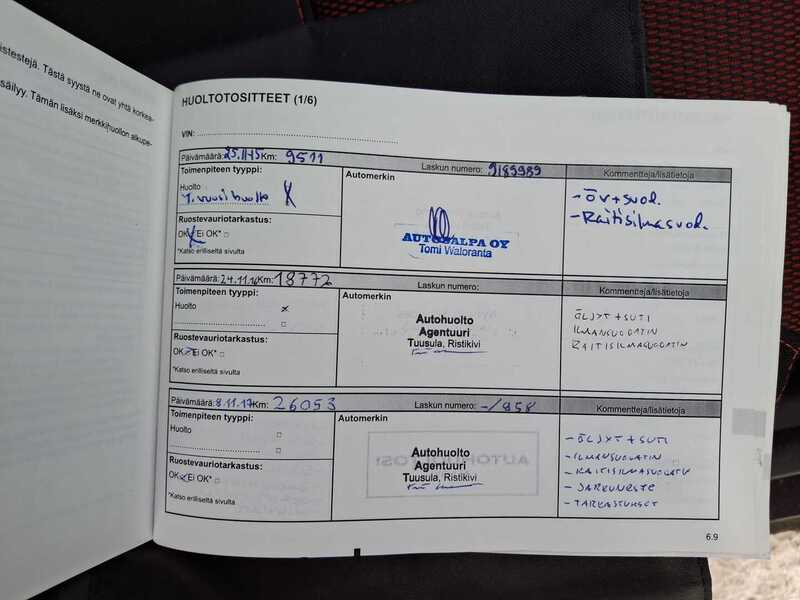 istestejä. Tästä syystä ne ovat yhtä korkea-
säilyy. Tämän lisäksi merkkihuollon alkupe-
HUOLTOTOSITTEET (1/6)
VIN:
Päivämäärä: 25.11.15 Km: 9511 Laskun numero: 9189989 Kommentteja/lisätietoja
Toimenpiteen tyyppi: Automerkin
Huolto
1. vuosihuolto X
- ÖV+suod.
- Raitisilmasuod.
Ruostevauriotarkastus:
OK X Ei OK* □
*Katso erilliseltä sivulta
AUTOSALPA OY
Tomi Waloranta
Päivämäärä: 24.11.16 Km: 18772 Laskun numero: Kommentteja/lisätietoja
Toimenpiteen tyyppi: Automerkin
Huolto x
□
Autohuolto
Agentuuri
Tuusula, Ristikivi
ÖLJYT + SUTI
ILMANSUODATIN
RAITISILMASUODATIN
Ruostevauriotarkastus:
OK Ei OK* □
*Katso erilliseltä sivulta
Päivämäärä: 8.11.17 Km: 26053 Laskun numero: -/858 Kommentteja/lisätietoja
Toimenpiteen tyyppi: Automerkin
Huolto □
□
Autohuolto
Agentuuri
Tuusula, Ristikivi
- ÖLJYT + SUTI
- ILMANSUODATIN
- RAITISILMASUODATIN
- JARRUNESTE
- TARKASTUKSET
Ruostevauriotarkastus:
OK Ei OK* □
*Katso erilliseltä sivulta
6.9